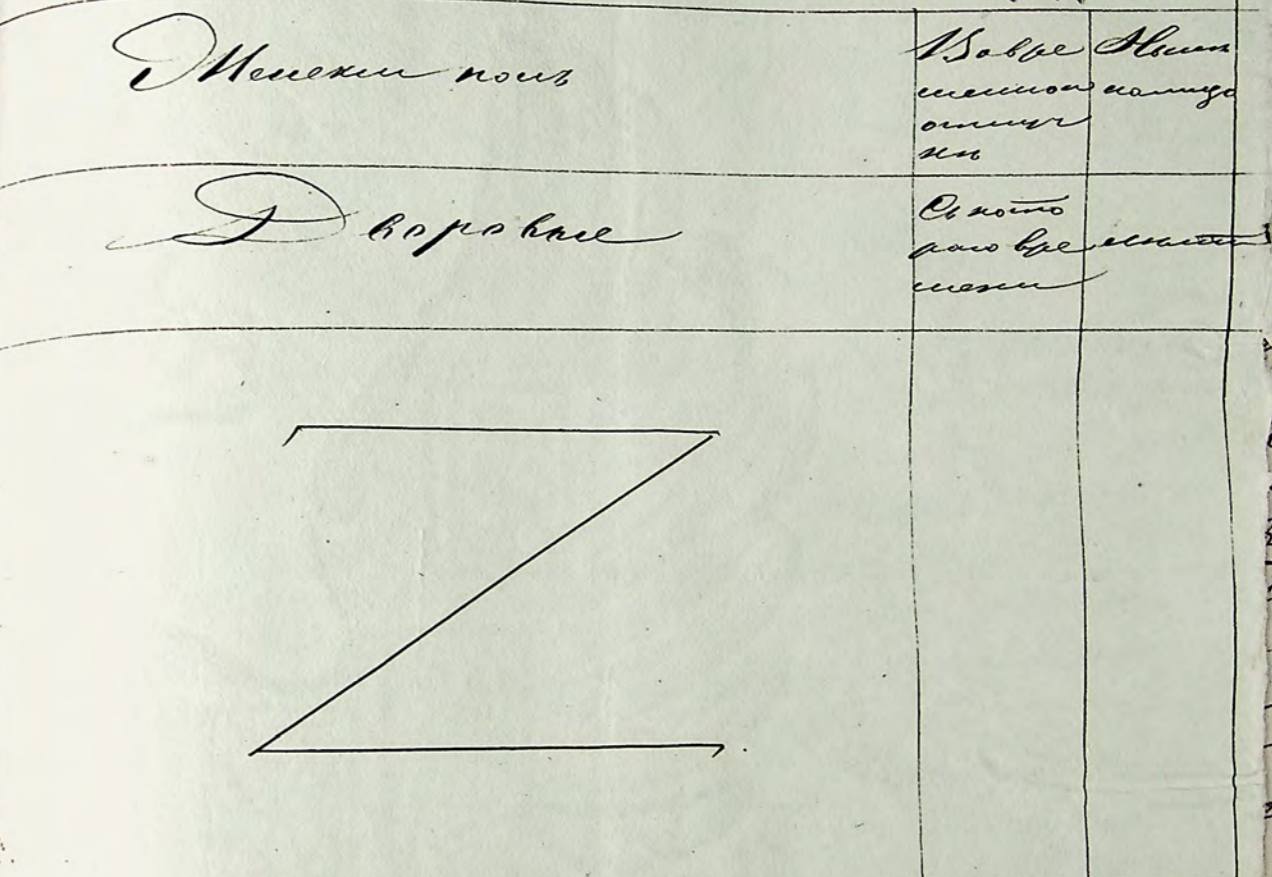 Женскии полъ
Вовре
менной
отлуч
кѣ
Нынѣ
на лицо
Дворовые
Съ кото
раго вре
мени
лѣта